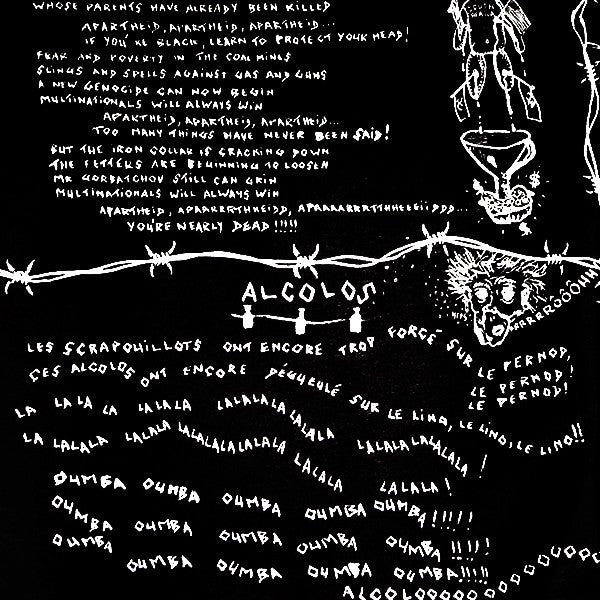 WHOSE PARENTS HAVE ALREADY BEEN KILLED
APARTHEID, APARTHEID, APARTHEID...
IF YOU'RE BLACK, LEARN TO PROTECT YOUR HEAD!
FEAR AND POVERTY IN THE COAL MINES
SLINGS AND SPELLS AGAINST GAS AND GUNS
A NEW GENOCIDE CAN NOW BEGIN
MULTINATIONALS WILL ALWAYS WIN
APARTHEID, APARTHEID, APARTHEID...
TOO MANY THINGS HAVE NEVER BEEN SAID!
BUT THE IRON COLLAR IS CRACKING DOWN
THE FETTERS ARE BEGINNING TO LOOSEN
MR GORBATCHOV STILL CAN GRIN
MULTINATIONALS WILL ALWAYS WIN
APARTHEID, APAARRRTHHEIDD, APAAAARRRTTHHEEEIIDDD...
YOU'RE NEARLY DEAD!!!!!
ALCOLOS
LES SCRAPOUILLOTS ONT ENCORE TROP FORCÉ SUR LE PERNOD,
LE PERNOD!
LE PERNOD!
CES ALCOLOS ONT ENCORE DÉGUEULÉ SUR LE LINO, LE LINO, LE LINO!!
LA LALALA LALALA LALALALALALALA
LA LALALA LALALA LALALALALALALA LALALALALALA!
LALALA LALALA!
OUMBA OUMBA OUMBA OUMBA OUMBA!!!!!
OUMBA OUMBA OUMBA OUMBA OUMBA!!!!!
OUMBA OUMBA OUMBA OUMBA OUMBA!!!!!